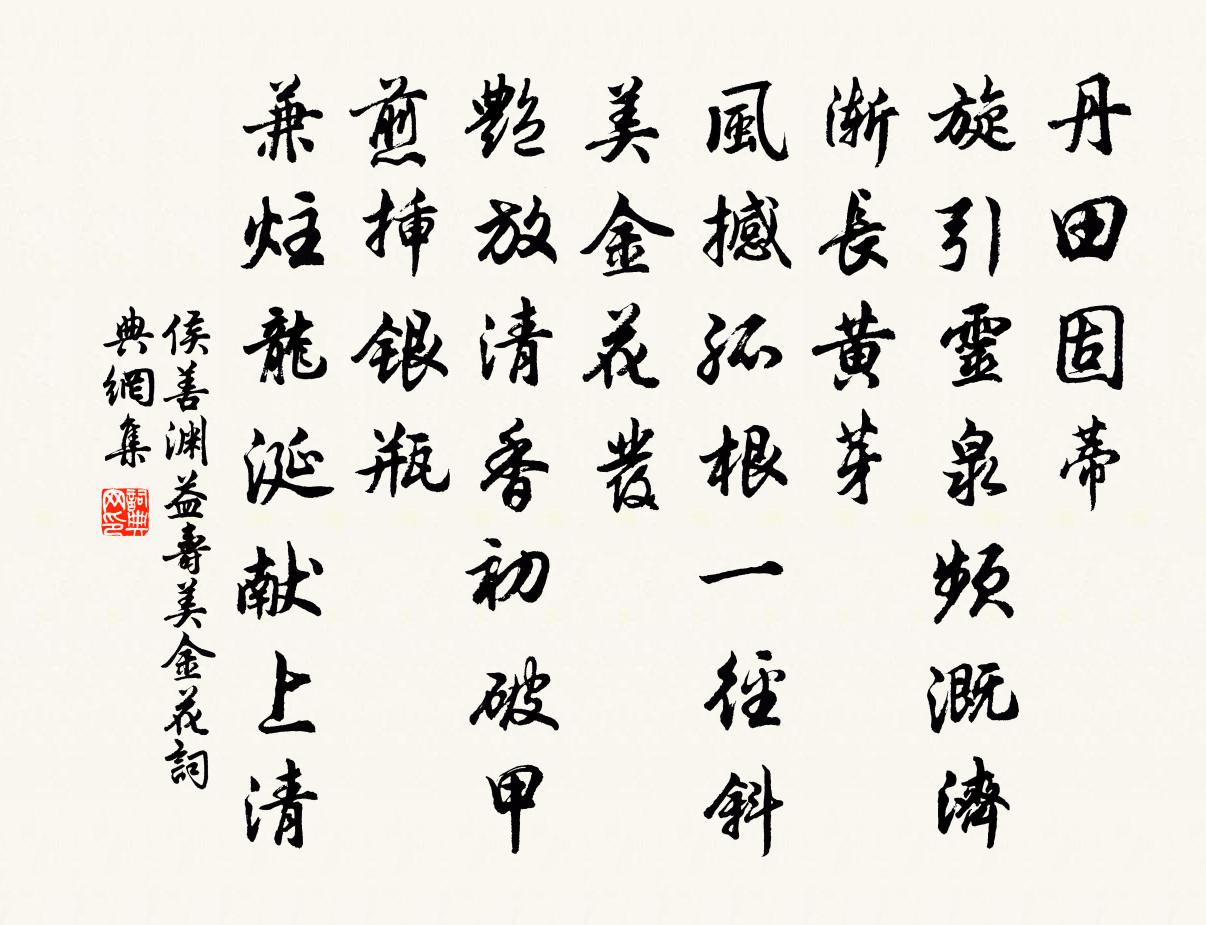 丹田固蒂
旋引靈泉頻溉濟
漸長黃芽
風撼孤根一徑斜
美金花發
艷放清香初破甲
煎插銀瓶
兼炷龍涎献上清
侯善渊益壽美金花詞
典網集
詞典网印